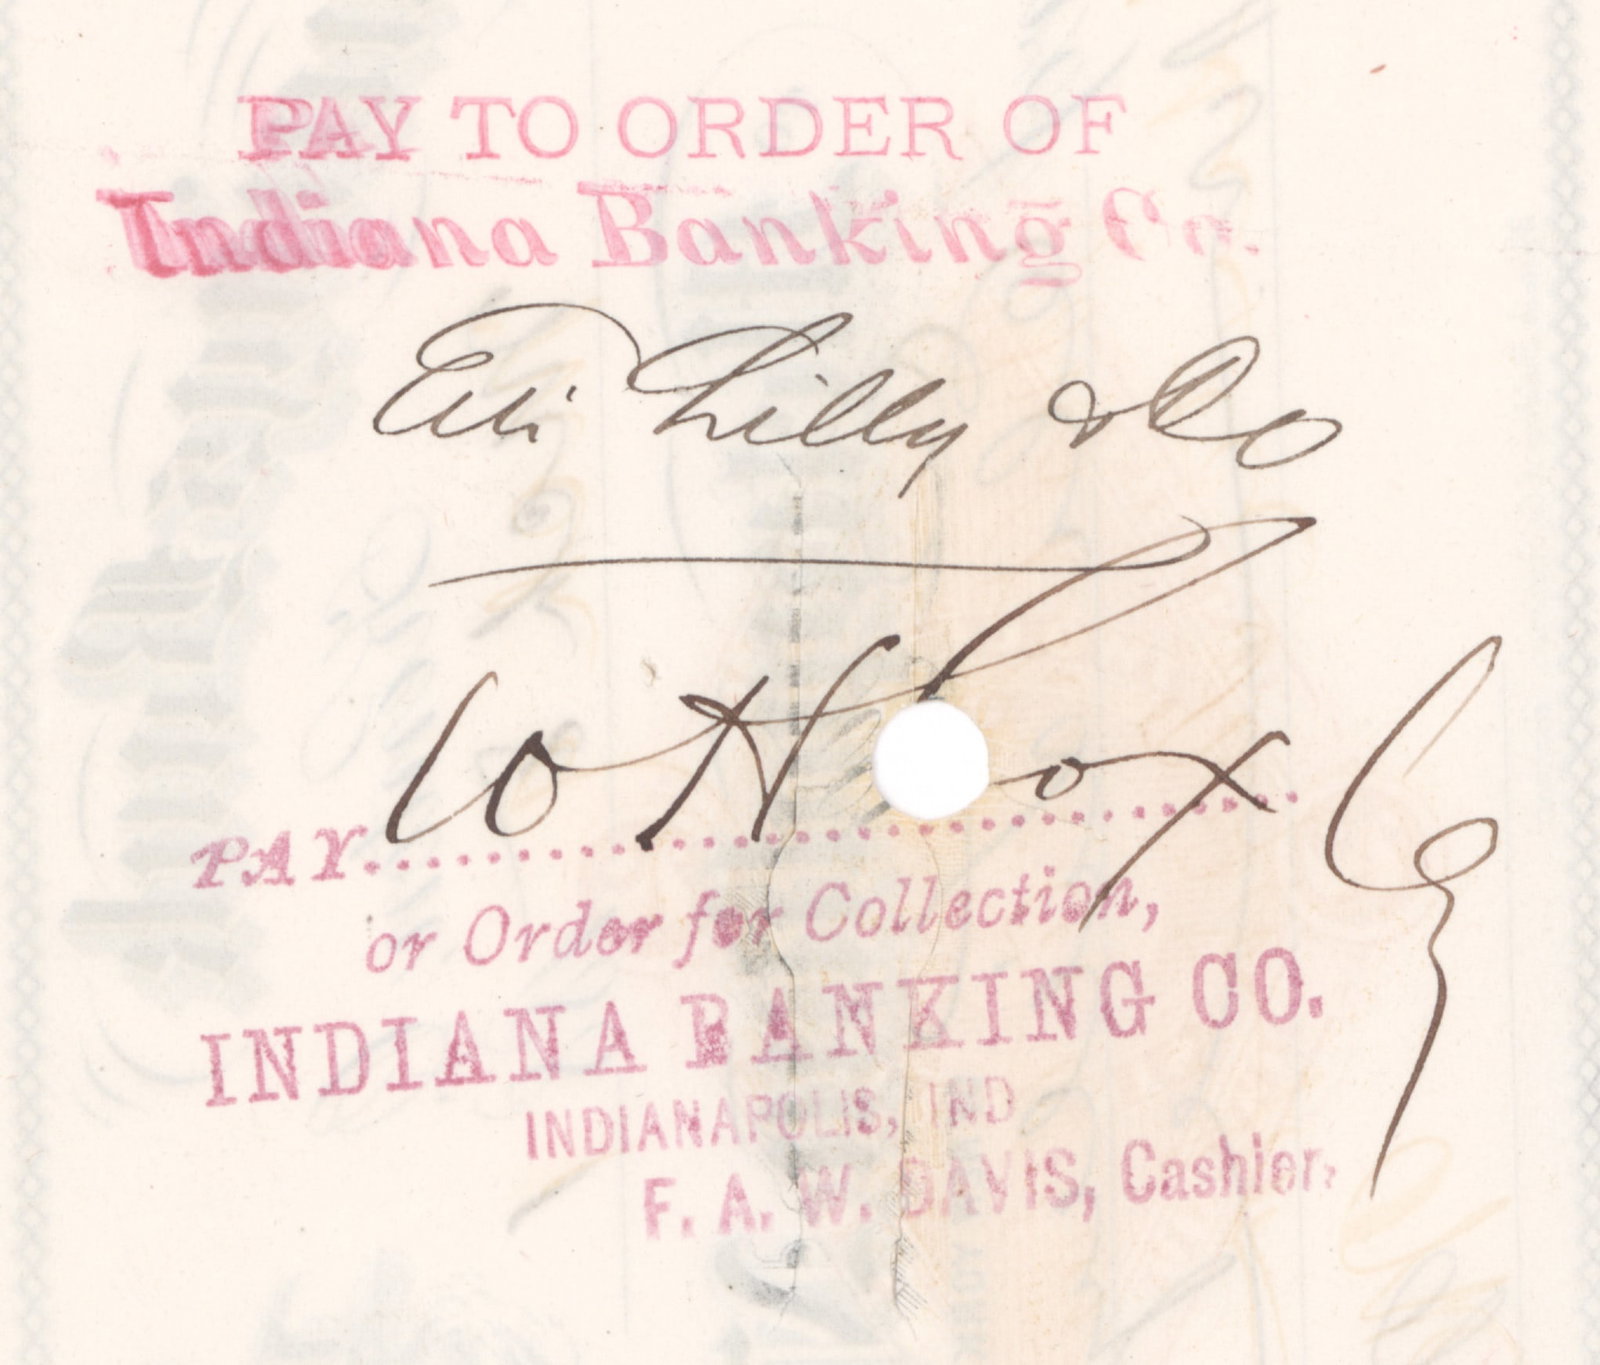 PAY TO ORDER OF
Indiana Banking Co.
Eli Lilly & Co
W H ox Cy
PAY
or Order for Collection,
INDIANA BANKING CO.
INDIANAPOLIS, IND
F. A. W. DAVIS, Cashier.